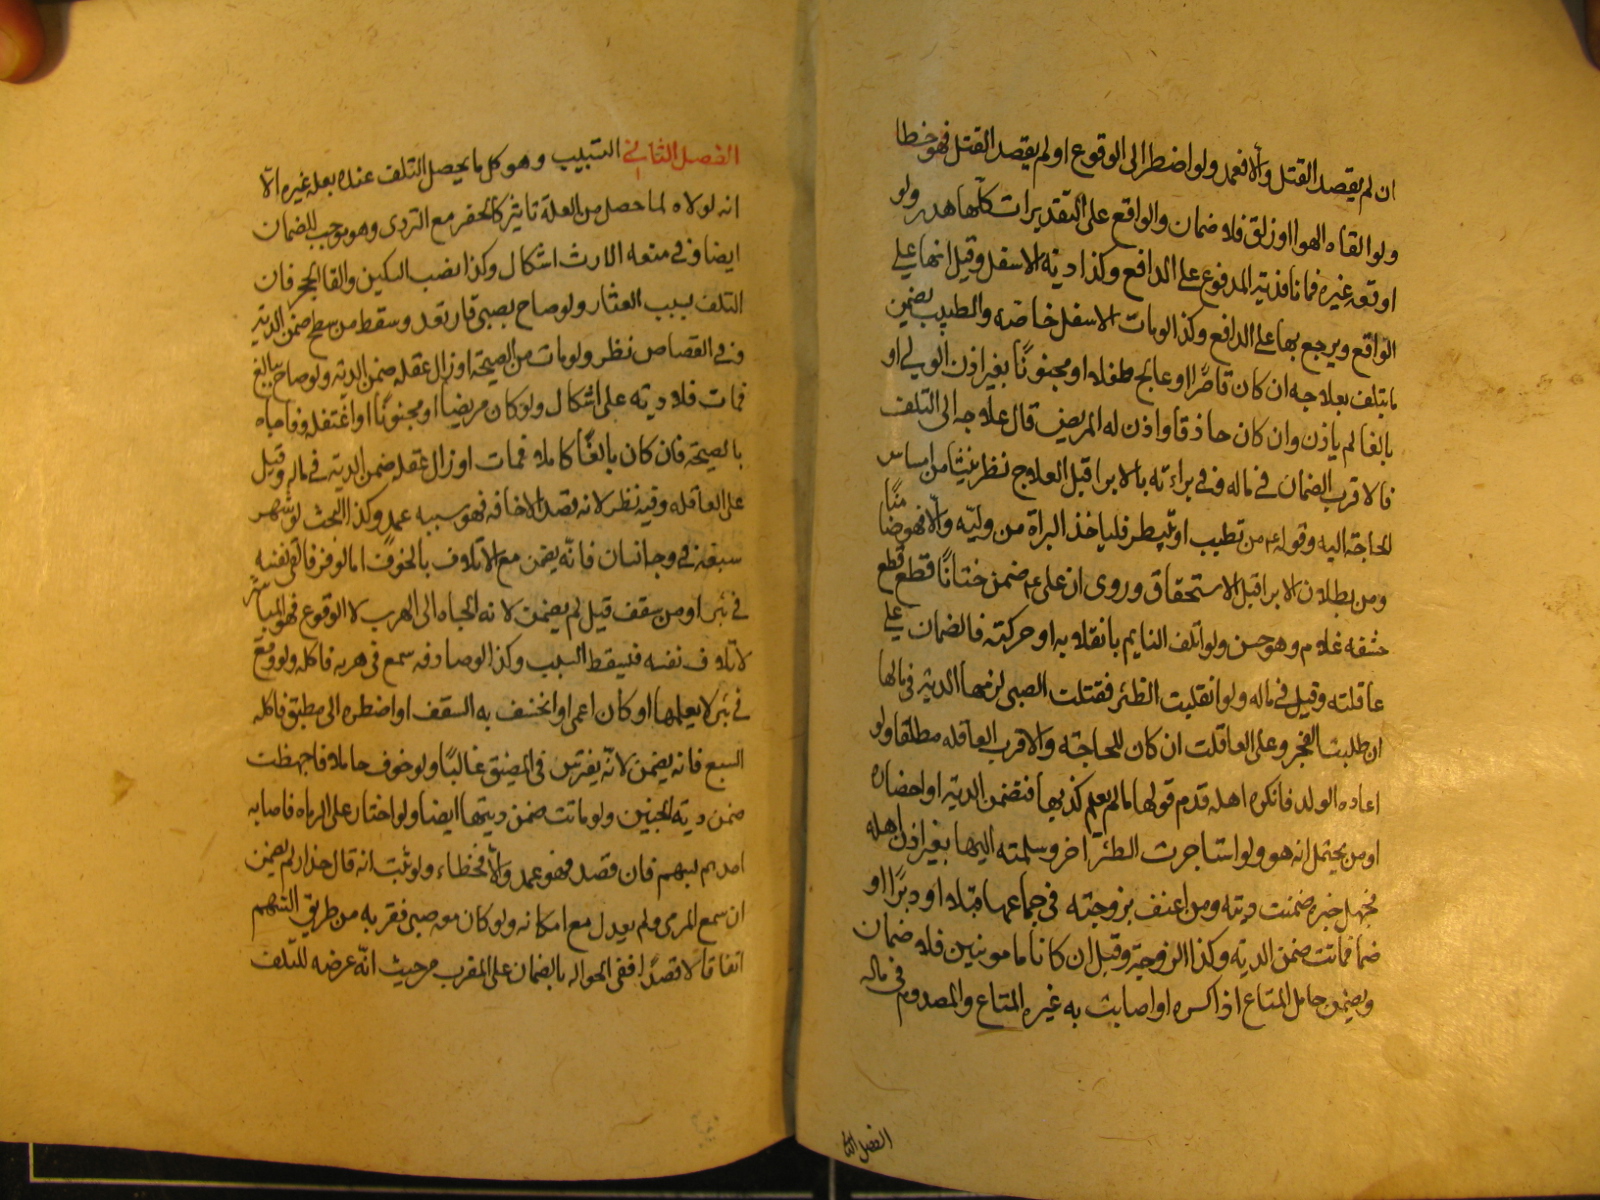 ان لم يقصد القتل والا فعمد ولو اضطر الى الوقوع او لم يقصد القتل فهو خطا
ولو القاه الهوا او زلق فلا ضمان والواقع على التقديرات كلها هدر ولو
اوقعه غيره فمات فدية المدفوع على الدافع وكذا دية الاسفل وقيل انها على
الواقع ويرجع بها على الدافع وكذا لو مات الاسفل خاصة والطبيب يضمن
ما يتلف بعلاجه ان كان قاصرا او عالج طفلا او مجنونا بغير اذن الولي او
بالغا لم ياذن وان كان حاذقا واذن له المريض فآل علاجه الى التلف
فالاقرب الضمان في ماله وفي براءته بالابرا قبل العلاج نظر ينشا من امساس
الحاجة اليه وقوله ع من تطبب او تبيطر فلياخذ البراة من وليه والا فهو ضامنا
ومن بطلان الابرا قبل الاستحقاق وروى ان على ع ضمن ختانا قطع قطع
حشفه غلام وهو حسن ولو اتلف النايم بانقلابه او حركته فالضمان على
عاقلته وقيل في ماله ولو انقلبت الظئر فقتلت الصبى لزمها الدية في مالها
ان طلبت الفخر وعلى العاقلت ان كان للحاجة والاقرب العاقله مطلقا ولو
اعاده الولد فانكره اهله قدم قولها ما لم يعلم كذبها فتضمن الدية او احضاره
او من يحتمل انه هو ولو استاجرت الظئر اخر وسلمته اليها بغير اذن اهله
فجهل خبره ضمنت ديته ومن اعنف بزوجته في جماعها قبلا او دبرا او
ضما فماتت ضمن الدية وكذا الزوجة وقيل ان كانا مامونين فلا ضمان
ويضمن حامل المتاع اذا كسره او اصابت به غيره المتاع والمصدوم في ماله
الفصل الثا
الفصل الثاني التسبيب وهو كل ما يحصل التلف عنده بعله غيره الا
انه لولاه لما حصل من العلة تاثير كالحفر مع التردى وهو موجب للضمان
ايضا وفي منعه الارث اشكال وكذا نصب السكين والقا الحجر فان
التلف بسبب العثار ولو صاح بصبى فارتعد وسقط من سطح ضمن الدية
وفي القصاص نظر ولو مات من الصيحة او زال عقله ضمن الدية ولو صاح ببالغ
فمات فلا دية على اشكال ولو كان مريضا او مجنونا او اغتفله وفاجاه
بالصيحة فان كان بالغا كاملا فمات او زال عقله ضمن الدية في ماله وقيل
على العاقله وفيه نظر لانه قصد الاخافه فهو سببه عمد وكذا البحث لو شهر
سيفه في وجه انسان فانه يضمن مع الاتلاف بالخوف اما لو فر فالقى نفسه
في بئر او من سقف قيل لم يضمن لانه الجاه الى الهرب لا الوقوع فهو المباشر
لاتلاف نفسه فيسقط السبب وكذا لو صادفه سبع في هربه فاكله ولو وقع
في بئر لا يعلمها او كان اعمى او انخسف به السقف او اضطره الى مضيق فاكله
السبع فانه يضمن لانه يفترس في المضيق غالبا ولو خوف حاملا فاجهضت
ضمن دية الجنين ولو ماتت ضمن ديتها ايضا ولو اجتاز على الرماه فاصابه
احدهم بسهم فان قصد فهو عمد والا فخطاء ولو ثبت انه قال حذار لم يضمن
ان سمع المرمى ولم يعدل مع امكانه ولو كان معه صبى فقربه من طريق السهم
اتفاقا لا قصدا ففى الحواله بالضمان على المقرب من حيث انه عرضه للتلف